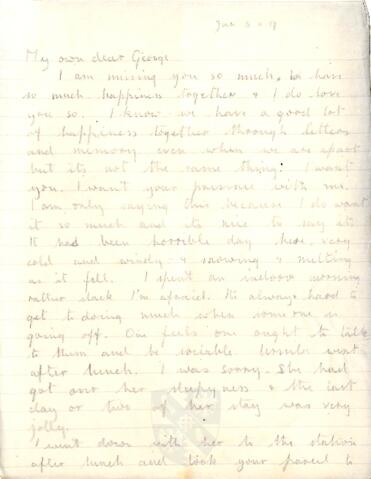 Jan 3 - 19
My own dear George
I am missing you so much. We have
so much happiness together & I do love
you so. I know we have a good lot
of happiness together through letters
and memory even when we are apart
but its not the same thing. I want
you. I want your presence with me.
I am only saying this because I do want
it so much and its nice to say it.
It had been horrible day here, very
cold and windy & snowing & melting
as it fell. I spent an indoors morning
rather slack I'm afraid. Its always hard to
get to doing much when some one is
going off. One feels one ought to talk
to them and be sociable. went
after lunch. I was sorry. She had
got over her sleepyness & the last
day or two of her stay was very
jolly.
I went down with her to the station
after lunch and took your parcel to